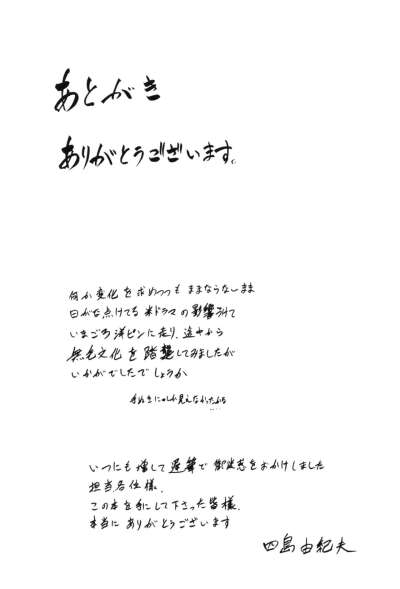 あとがき
ありがとうございます。
何か変化を求めつつもままならないまま
日がな点けてる米ドラマの影響されて
いまごろ洋ピンに走り、途中から
無毛文化を踏襲してみましたが
いかがでしたでしょうか
手ぬきにしか見えなかったかも
....
いつにも増して遅筆で御迷惑をおかけしました
担当各位様、
この本を手にして下さった皆様、
本当にありがとうございます
四島由紀夫